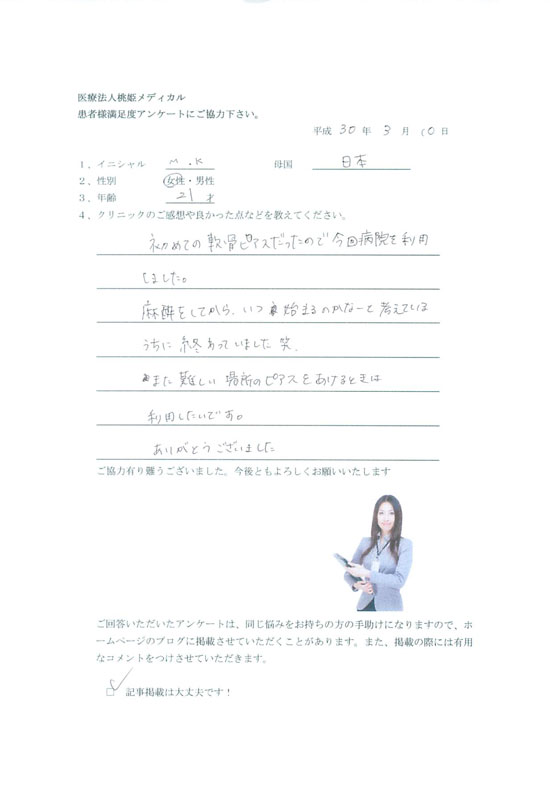 医療法人桃姫メディカル
患者様満足度アンケートにご協力下さい。
平成 30 年 3 月 10 日
1、イニシャル M.K 母国 日本
2、性別 女性・男性
3、年齢 21 才
4、クリニックのご感想や良かった点などを教えてください。
初めての軟骨ピアスだったので今回病院を利用
しました。
麻酔をしてから、いつ始まるのかなーと考えている
うちに終わっていました笑
また難しい場所のピアスをあけるときは
利用したいです。
ありがとうございました
ご協力有り難うございました。今後ともよろしくお願いいたします
ご回答いただいたアンケートは、同じ悩みをお持ちの方の手助けになりますので、ホ
ームページのブログに掲載させていただくことがあります。また、掲載の際には有用
なコメントをつけさせていただきます。
□ 記事掲載は大丈夫です！